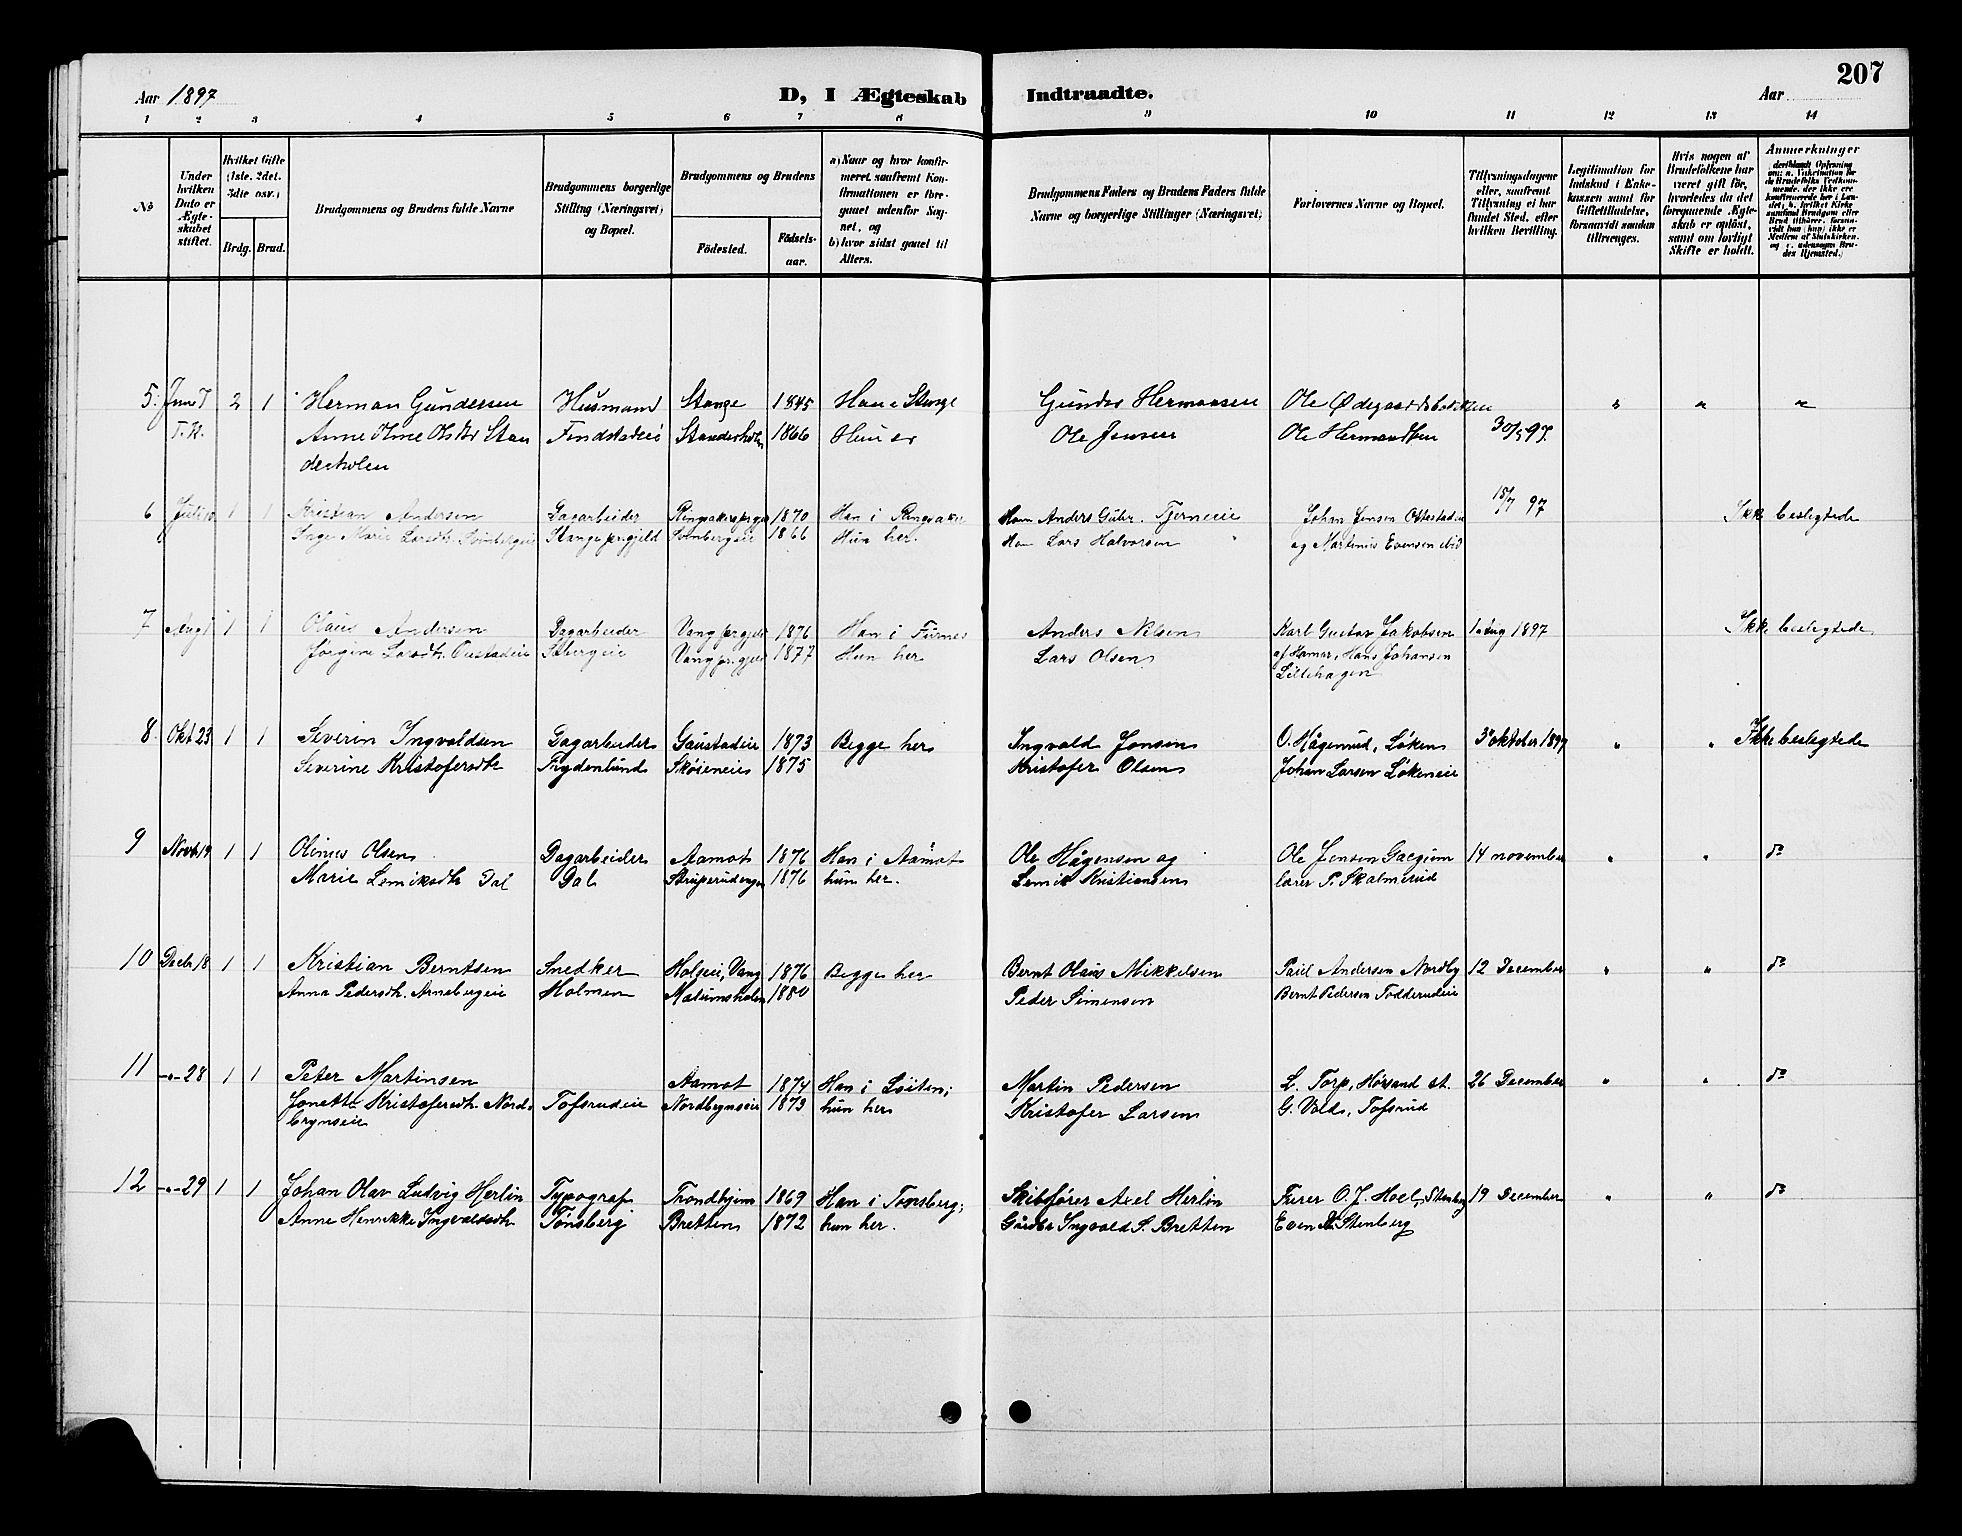 207
Aar 1897
D, I Ægteskab Indtraadte.
Aar
1 2 3 4 5 6 7 8 9 10 11 12 13 14
No
Under hvilken Dato er Ægteskabet stiftet.
Hvilket Gifte (1ste. 2det. 3die osv.)
Brdg. Brud.
Brudgommens og Brudens fulde Navne
Brudgommens borgerlige Stilling (Næringsvei) og Bopæl.
Brudgommens og Brudens
Födested.
Födselsaar.
a) Naar og hvor konfirmeret saafremt Konfirmationen er foregaaet udenfor Sognet, og
b) hvor sidst gaaet til Alters.
Brudgommens Faders og Brudens Faders fulde Navne og borgerlige Stillinger (Næringsvei)
Forlovernes Navne og Bopæl.
Tillysningsdagene eller, saafremt Tillysning ei har fundet Sted, efter hvilken Bevilling.
Legitimation for Indskud i Enkekassen samt for Giftetilladelse, forsaavidt saadan tiltrænges.
Hvis nogen af Brudefolkene har været gift för, hvorledes da det foregaaende Ægteskab er oplöst, samt om lovligt Skifte er holdt.
Anmærkninger
5. Juni 7 2 1 Herman Gundersen Husmand Stange 1845 Han i Stange Gunder Hermansen Ole Ødegaardsbakken " " "
Anne Oline Olsdtr Stan Findstadeie 1866 Hun er Ole Jensen Ole Hermandsen 30/5 97.
derholen
6 Juli 1 1 Kristian Andersen Dagarbeider Ringsakers prgj 1870 Han i Ringsaker Anders Gulbr. Tjerneeie Johan Jensen Ottestadeie 18/7 97 Ikke beslegtede
Inge Marie Larsdtr. Svinbergeie Stange prgjeld Svinbergeie 1866 Hun her. Lars Halvorsen " og Martinus Evensen ibid
7 Aug 1 1 1 Olaus Andersen Dagarbeider Vang prgjeld 1876 Han i Furnes Anders Nilsen Karl Gustav Jakobsen 1 Aug 1897 Ikke beslegtede
Jørgine Larsdtr. Stbergeie Vang prgjeld 1877 Hun her Lars Olsen af Hamar, Hans Johansen
Lillehagen
8. Okt 23 1 1 Severin Ingvaldsen Dagarbeider Gaustadeie 1873 Begge her Ingvald Jonsen O. Hågenrud, Løken 3 oktober 1897 " " Ikke beslegtede
Severine Kristofersdtr Frydenlund Skøieneie 1875 Kristofer Olsen Johan Larsen Løkeneie
9 Novb 19 1 1 Olinus Olsen Dagarbeider Aamot 1876 Han i Aamot Ole Hågensen og Ole Jensen 14 november " " do
Marie Lemiksdtr Dal Dal Struperudenga 1876 hun her. Lemik Kristiansen lærer P. Skalmerud
10 Decbr 18 1 1 Kristian Berntsen Snedker Holseie, Vang 1876 Begge her Bernt Olaus Mikkelsen Paul Andersen Nordby 12 December " " do
Anna Pedersdtr. Arnebergeie Holmen 1880 Peder Simensen Bernt Pedersen Todderudeie
11 -"- 28 1 1 Peter Martinsen Aamot 1874 Han i Løiten; Martin Pedersen L. Torp, Hørsand st. 26 December " " do
Jonette Kristofersdtr. Nord- Tofsrudeie Nordbynseie 1873 hun her Kristofer Larsen G. Vold, Tofsrud
bynseie
12 -"- 29 1 1 Johan Olav Ludvig Herlin Typograf Trondhjem 1869 Han i Tønsberg; Skibsfører Axel Herlin Furer O. J. Hoel, Stenberg 19 December " " do
Anne Henrikke Ingvaldsdtr Tønsberg Bretten 1872 hun her. Gårdbr Ingvald S. Bretten Even A. Stenberg